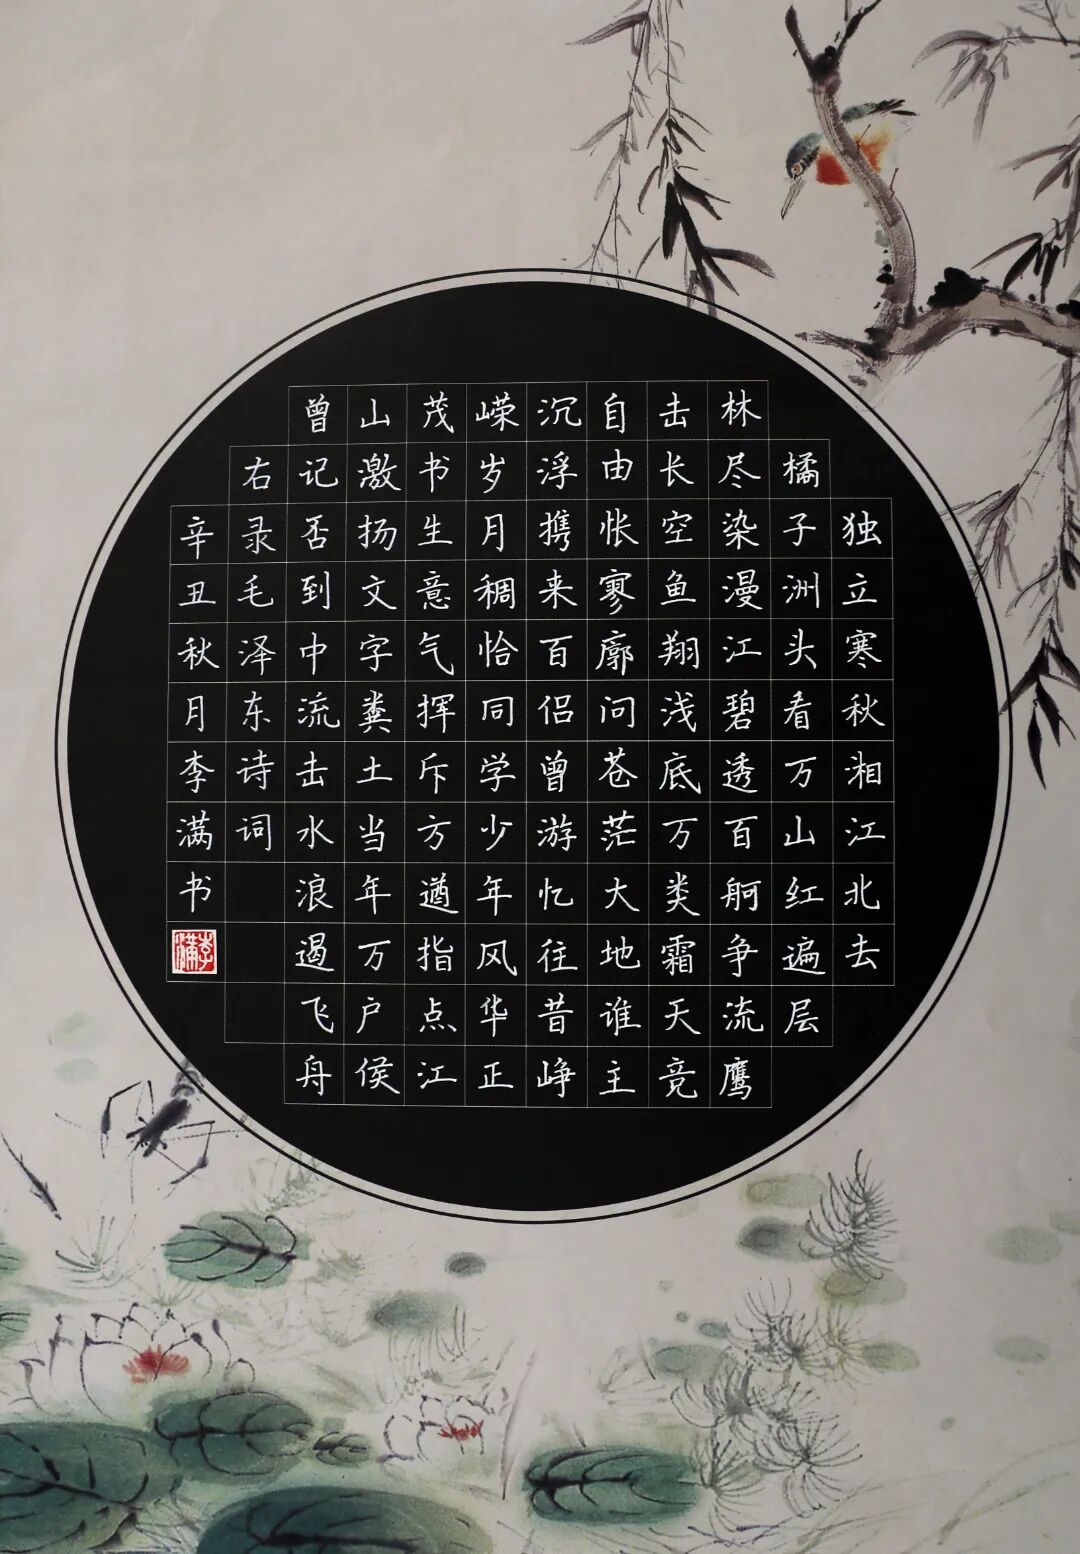 独立寒秋湘江北去
橘子洲头看万山红遍层
林尽染漫江碧透百舸争流鹰
击长空鱼翔浅底万类霜天竞
自由怅寥廓问苍茫大地谁主
沉浮携来百侣曾游忆往昔峥
嵘岁月稠恰同学少年风华正
茂书生意气挥斥方遒指点江
山激扬文字粪土当年万户侯
曾记否到中流击水浪遏飞舟
右录毛泽东诗词
辛丑秋月李满书
李满